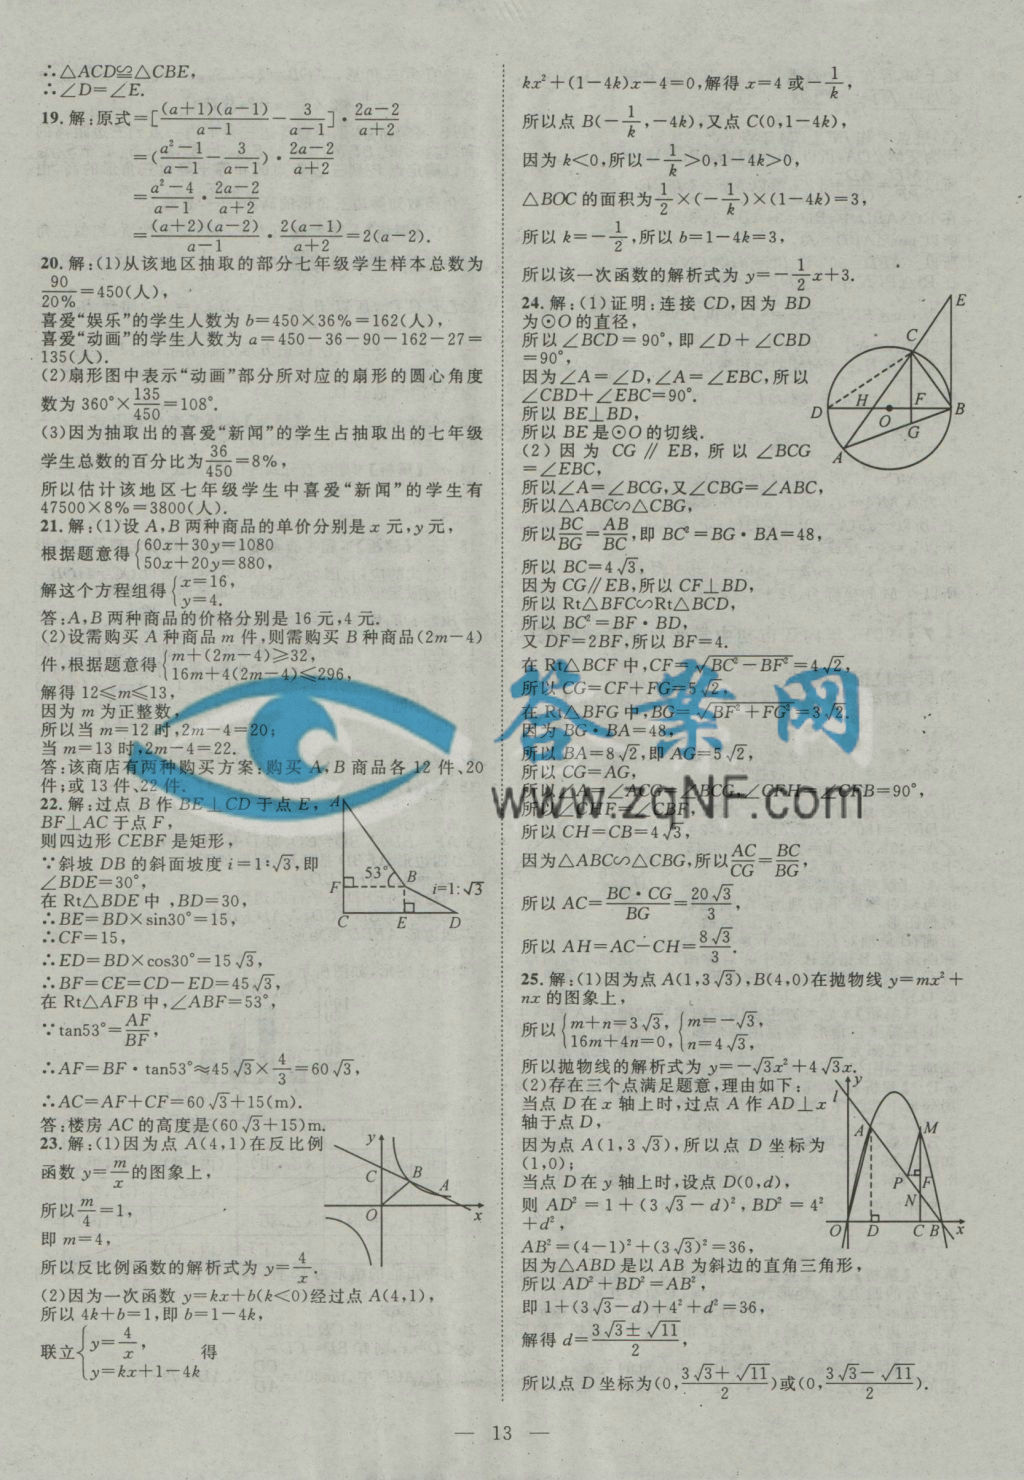 ∴△ACD≌△CBE,
∴∠D=∠E.
19.解:原式=[(a+1)(a-1)/(a-1) - 3/(a-1)]·(2a-2)/(a+2)
=((a²-1)/(a-1) - 3/(a-1))·(2a-2)/(a+2)
=(a²-4)/(a-1)·(2a-2)/(a+2)
=(a+2)(a-2)/(a-1)·2(a-1)/(a+2)=2(a-2).
20.解:(1)从该地区抽取的部分七年级学生样本总数为
90/20%=450(人),
喜爱“娱乐”的学生人数为b=450×36%=162(人),
喜爱“动画”的学生人数为a=450-36-90-162-27=
135(人).
(2)扇形图中表示“动画”部分所对应的扇形的圆心角度
数为360°×135/450=108°.
(3)因为抽取出的喜爱“新闻”的学生占抽取出的七年级
学生总数的百分比为36/450=8%,
所以估计该地区七年级学生中喜爱“新闻”的学生有
47500×8%=3800(人).
21.解:(1)设A,B两种商品的单价分别是x元,y元,
根据题意得{60x+30y=1080
50x+20y=880,
解这个方程组得{x=16,
y=4.
答:A,B两种商品的价格分别是16元,4元.
(2)设需购买A种商品m件,则需购买B种商品(2m-4)
件,根据题意得{m+(2m-4)≥32,
16m+4(2m-4)≤296,
解得12≤m≤13,
因为m为正整数,
所以当m=12时,2m-4=20;
当m=13时,2m-4=22.
答:该商店有两种购买方案:购买A,B商品各12件、20
件;或13件、22件.
22.解:过点B作BE⊥CD于点E,
BF⊥AC于点F,
则四边形CEBF是矩形,
∵斜坡DB的斜面坡度i=1:√3,即
∠BDE=30°,
在Rt△BDE中,BD=30,
∴BE=BD×sin30°=15,
∴CF=15,
∴ED=BD×cos30°=15√3,
∴BF=CE=CD-ED=45√3,
在Rt△AFB中,∠ABF=53°,
∵tan53°=AF/BF,
∴AF=BF·tan53°≈45√3×4/3=60√3,
∴AC=AF+CF=60√3+15(m).
答:楼房AC的高度是(60√3+15)m.
A
53°
B
i=1:√3
F
C
E
D
23.解:(1)因为点A(4,1)在反比例
函数y=m/x的图象上,
所以m/4=1,
即m=4,
所以反比例函数的解析式为y=4/x.
(2)因为一次函数y=kx+b(k<0)经过点A(4,1),
所以4k+b=1,即b=1-4k,
联立{y=4/x,
y=kx+1-4k
得
y
C
B
A
O
x
kx²+(1-4k)x-4=0,解得x=4或-1/k,
所以点B(-1/k,-4k),又点C(0,1-4k),
因为k<0,所以-1/k>0,1-4k>0,
△BOC的面积为1/2×(-1/k)×(1-4k)=3,
所以k=-1/2,所以b=1-4k=3,
所以该一次函数的解析式为y=-1/2x+3.
24.解:(1)证明:连接CD,因为BD
为⊙O的直径,
所以∠BCD=90°,即∠D+∠CBD
=90°,
因为∠A=∠D,∠A=∠EBC,所以
∠CBD+∠EBC=90°.
所以BE⊥BD,
所以BE是⊙O的切线.
(2)因为CG∥EB,所以∠BCG
=∠EBC,
所以∠A=∠BCG,又∠CBG=∠ABC,
所以△ABC∽△CBG,
所以BC/BG=AB/BC,即BC²=BG·BA=48,
所以BC=4√3,
因为CG∥EB,所以CF⊥BD,
所以Rt△BFC∽Rt△BCD,
所以BC²=BF·BD,
又DF=2BF,所以BF=4.
在Rt△BCF中,CF=√(BC²-BF²)=4√2,
所以CG=CF+FG=5√2,
在Rt△BFG中,BG=√(BF²+FG²)=3√2.
因为BG·BA=48,
所以BA=8√2,即AG=5√2,
所以CG=AG,
所以∠A=∠ACG=∠BCG,∠CFH=∠CFB=90°,
所以∠CHF=∠CBF,
所以CH=CB=4√3,
因为△ABC∽△CBG,所以AC/CG=BC/BG,
所以AC=BC·CG/BG=20√3/3,
所以AH=AC-CH=8√3/3.
E
C
D
H
F
O
B
G
A
25.解:(1)因为点A(1,3√3),B(4,0)在抛物线y=mx²+
nx的图象上,
所以{m+n=3√3,
16m+4n=0,
{m=-√3,
n=4√3,
所以抛物线的解析式为y=-√3x²+4√3x.
(2)存在三个点满足题意,理由如下:
当点D在x轴上时,过点A作AD⊥x
轴于点D,
因为点A(1,3√3),所以点D坐标为
(1,0);
当点D在y轴上时,设点D(0,d),
则AD²=1+(3√3-d)²,BD²=4²
+d²,
AB²=(4-1)²+(3√3)²=36,
因为△ABD是以AB为斜边的直角三角形,
所以AD²+BD²=AB²,
即1+(3√3-d)+4²+d²=36,
解得d=(3√3±√11)/2,
所以点D坐标为(0,(3√3+√11)/2)或(0,(3√3-√11)/2).
l
y
A
M
P
F
N
O
D
C
B
x
答案网
www.zqNF.com
— 13 —